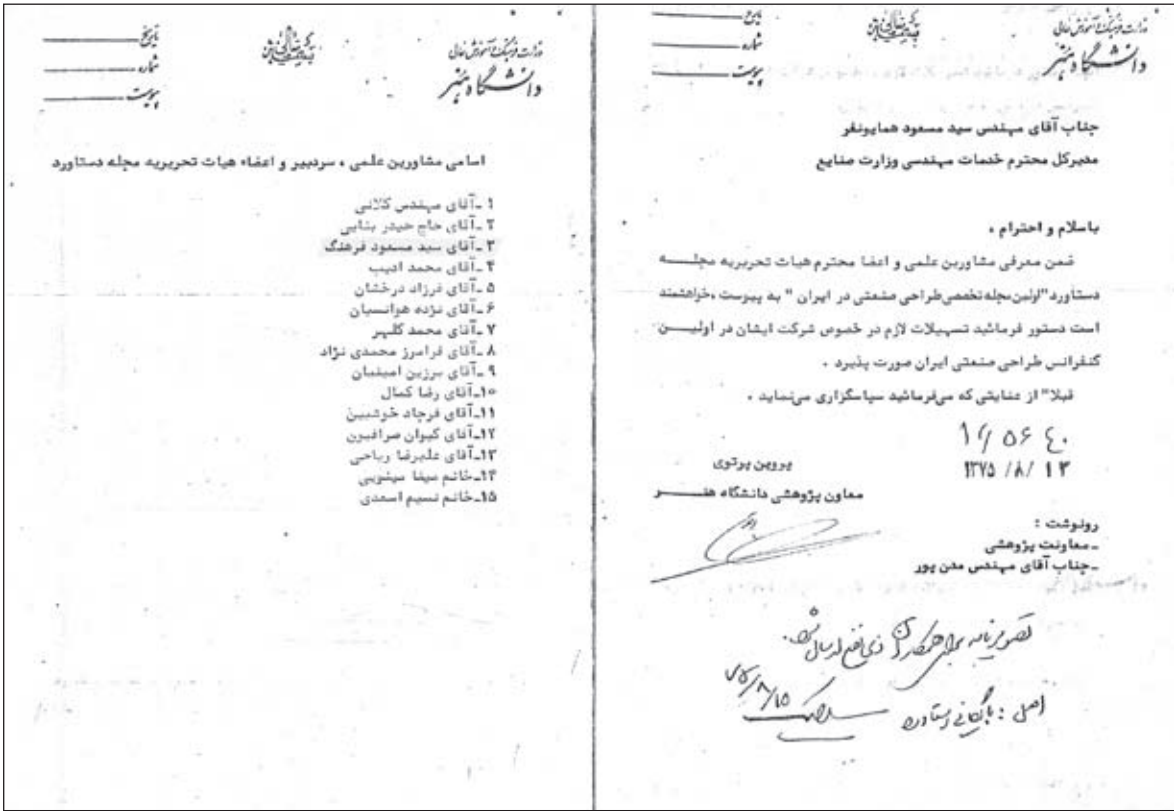 وزارت فرهنگ و آموزش عالی
دانشگاه هنر
تاریخ
شماره
پیوست
جناب آقای مهندس سید مسعود همایونفر
مدیرکل محترم خدمات مهندسی وزارت صنایع
باسلام و احترام ،
ضمن معرفی مشاورین علمی و اعضا محترم هیات تحریریه مجلـــه
دستاورد "اولین مجله تخصصی طراحی صنعتی در ایران " به پیوست ،خواهشمند
است دستور فرمائید تسهیلات لازم در خصوص شرکت ایشان در اولیـــن
کنفرانس طراحی صنعتی ایران صورت پذیرد .
قبلا" از عنایتی که می‌فرمائید سپاسگزاری می‌نماید .
۱۳۷۵ /۸/ ۱۳
پروین پرتوی
معاون پژوهشی دانشگاه هنـــر
رونوشت :
ـ معاونت پژوهشی
ـ جناب آقای مهندس مدن پور
تصویر نامه برای همکاران ذی نفع ارسال شود.
اصل : بایگانی دستاورد
۷۵/۸/۱۵
وزارت فرهنگ و آموزش عالی
دانشگاه هنر
تاریخ
شماره
پیوست
اسامی مشاورین علمی ، سردبیر و اعضاء هیات تحریریه مجله دستاورد
۱ ـ آقای مهندس کلانی
۲ ـ آقای حاج حیدر بنایی
۳ ـ آقای سید مسعود فرهنگ
۴ ـ آقای محمد ادیب
۵ ـ آقای فرزاد درخشان
۶ ـ آقای نژده هوانسیان
۷ ـ آقای محمد گلپر
۸ ـ آقای فرامرز محمدی نژاد
۹ ـ آقای برزین امینیان
۱۰ـ آقای رضا کمال
۱۱ـ آقای فرجاد خوشبین
۱۲ـ آقای کیوان صرافیون
۱۳ـ آقای علیرضا ریاحی
۱۴ـ خانم مینا مینویی
۱۵ـ خانم نسیم اسعدی